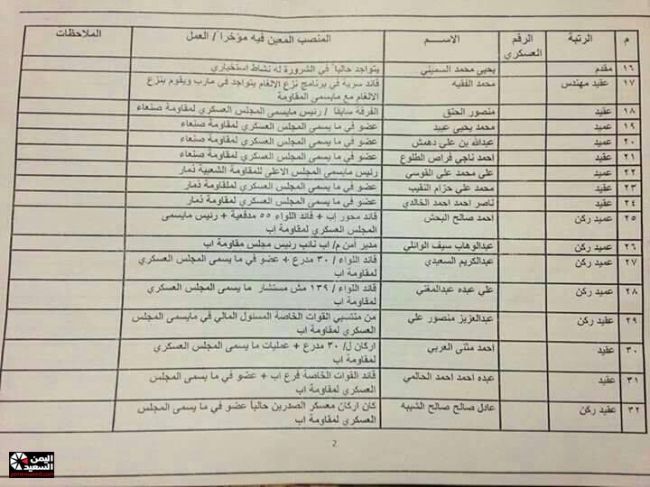 م الرتبة الرقم العسكري الاســـم المنصب المعين فيه مؤخرا / العمل الملاحظات
١٦ مقدم يحيى محمد السميني يتواجد حالياً في الشرورة له نشاط استخباري
١٧ عقيد مهندس محمد الفقيه قائد سريه في برنامج نزع الالغام يتواجد في مارب ويقوم بنزع
الالغام مع مايسمى المقاومة
١٨ عقيد منصور الحنق الفرقة سابقا / رئيس مايسمى المجلس العسكري لمقاومة صنعاء
١٩ عميد محمد يحيى عبيد عضو في ما يسمى المجلس العسكري لمقاومة صنعاء
٢٠ عميد عبدالله بن علي دهمش عضو في ما يسمى المجلس العسكري لمقاومة صنعاء
٢١ عقيد احمد ناجي فراص الطلوع عضو في ما يسمى المجلس العسكري لمقاومة صنعاء
٢٢ عميد علي محمد علي القوسي رئيس مايسمى المجلس الاعلى للمقاومة الشعبية ذمار
٢٣ عقيد محمد علي حزام النقيب عضو في ما يسمى المجلس العسكري لمقاومة ذمار
٢٤ عقيد ناصر احمد احمد الخالدي عضو في ما يسمى المجلس العسكري لمقاومة ذمار
٢٥ عميد ركن احمد صالح البحش قائد محور اب + قائد اللواء ٥٥ مدفعية + رئيس مايسمى
المجلس العسكري لمقاومة اب
٢٦ عميد ركن عبدالوهاب سيف الوائلي مدير أمن م/ اب نائب رئيس مجلس مقاومة اب
٢٧ عقيد ركن عبدالكريم السعيدي قائد اللواء / ٣٠ مدرع + عضو في ما يسمى المجلس العسكري
لمقاومة اب
٢٨ عميد ركن علي عبده عبدالمغني قائد اللواء / ١٣٩ مش مستشار ما يسمى المجلس العسكري
لمقاومة اب
٢٩ عقيد ركن عبدالعزيز منصور علي من منتسبي القوات الخاصة المسئول المالي في مايسمى المجلس
العسكري لمقاومة اب
٣٠ عقيد احمد مثنى العربي اركان ل/ ٣٠ مدرع + عمليات ما يسمى المجلس العسكري
لمقاومة اب
٣١ عقيد عبده احمد احمد الحالمي قائد القوات الخاصة فرع اب + عضو في ما يسمى المجلس
العسكري لمقاومة اب
٣٢ عقيد ركن عادل صالح صالح الشيبه كان اركان معسكر الصدرين حالياً عضو في ما يسمى المجلس
العسكري لمقاومة اب
2
اليمن
السعيد